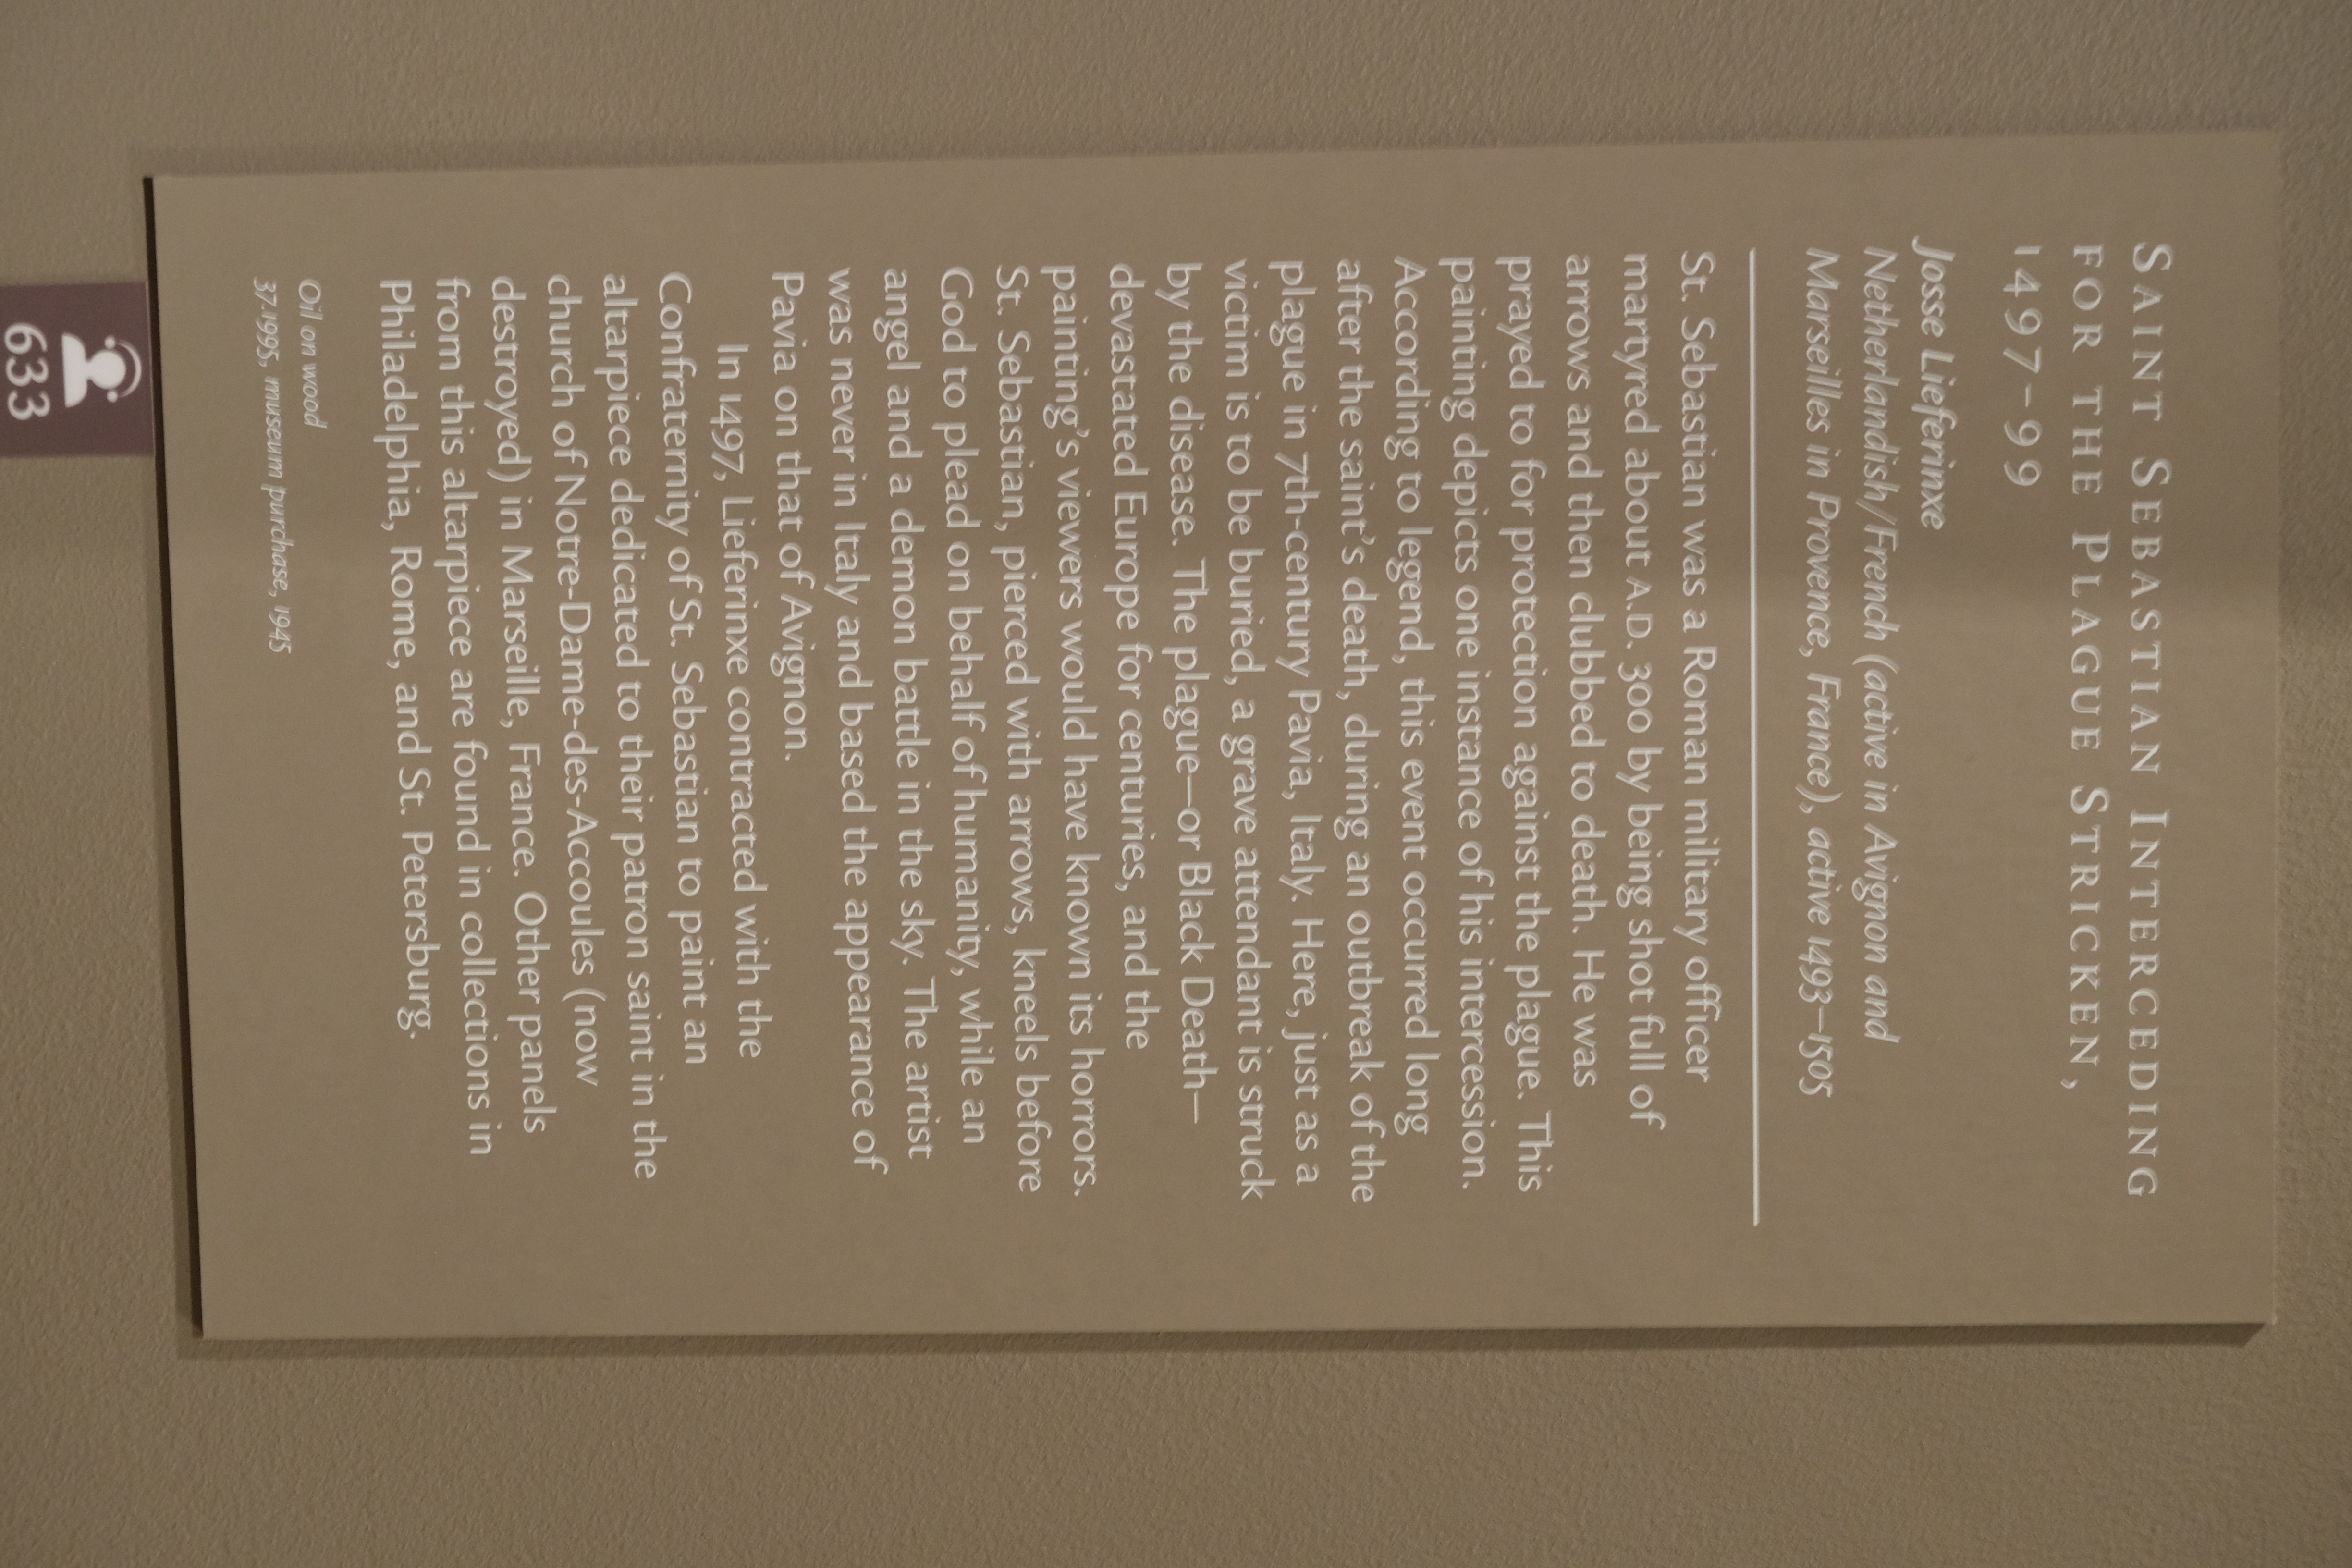 SAINT SEBASTIAN INTERCEDING
FOR THE PLAGUE STRICKEN,
1497–99
Josse Lieferinxe
Netherlandish/French (active in Avignon and
Marseilles in Provence, France), active 1493–1505
St. Sebastian was a Roman military officer
martyred about A.D. 300 by being shot full of
arrows and then clubbed to death. He was
prayed to for protection against the plague. This
painting depicts one instance of his intercession.
According to legend, this event occurred long
after the saint's death, during an outbreak of the
plague in 7th-century Pavia, Italy. Here, just as a
victim is to be buried, a grave attendant is struck
by the disease. The plague—or Black Death—
devastated Europe for centuries, and the
painting's viewers would have known its horrors.
St. Sebastian, pierced with arrows, kneels before
God to plead on behalf of humanity, while an
angel and a demon battle in the sky. The artist
was never in Italy and based the appearance of
Pavia on that of Avignon.
In 1497, Lieferinxe contracted with the
Confraternity of St. Sebastian to paint an
altarpiece dedicated to their patron saint in the
church of Notre-Dame-des-Accoules (now
destroyed) in Marseille, France. Other panels
from this altarpiece are found in collections in
Philadelphia, Rome, and St. Petersburg.
Oil on wood
37.1995, museum purchase, 1945
633